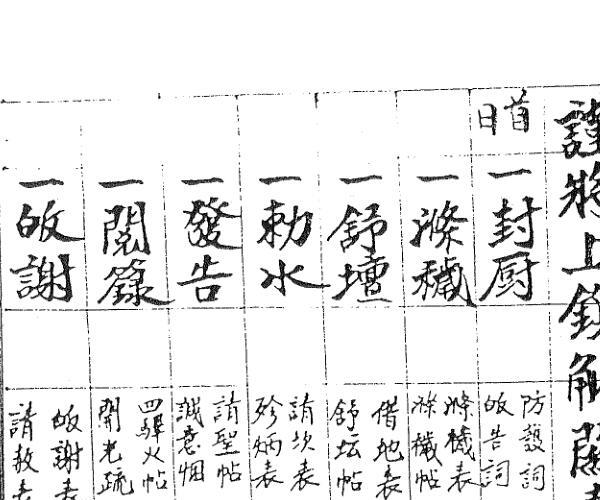 謹將上
首日
一封厨
防護詞
皈告詞
一滌穢
滌穢表
滌穢帖
一舒壇
借地表
舒坛帖
一勅水
請水表
殄炳表
一發告
請聖帖
誠意烟
一閱籙
四驛火帖
開光疏
一皈謝
皈謝表
請赦表